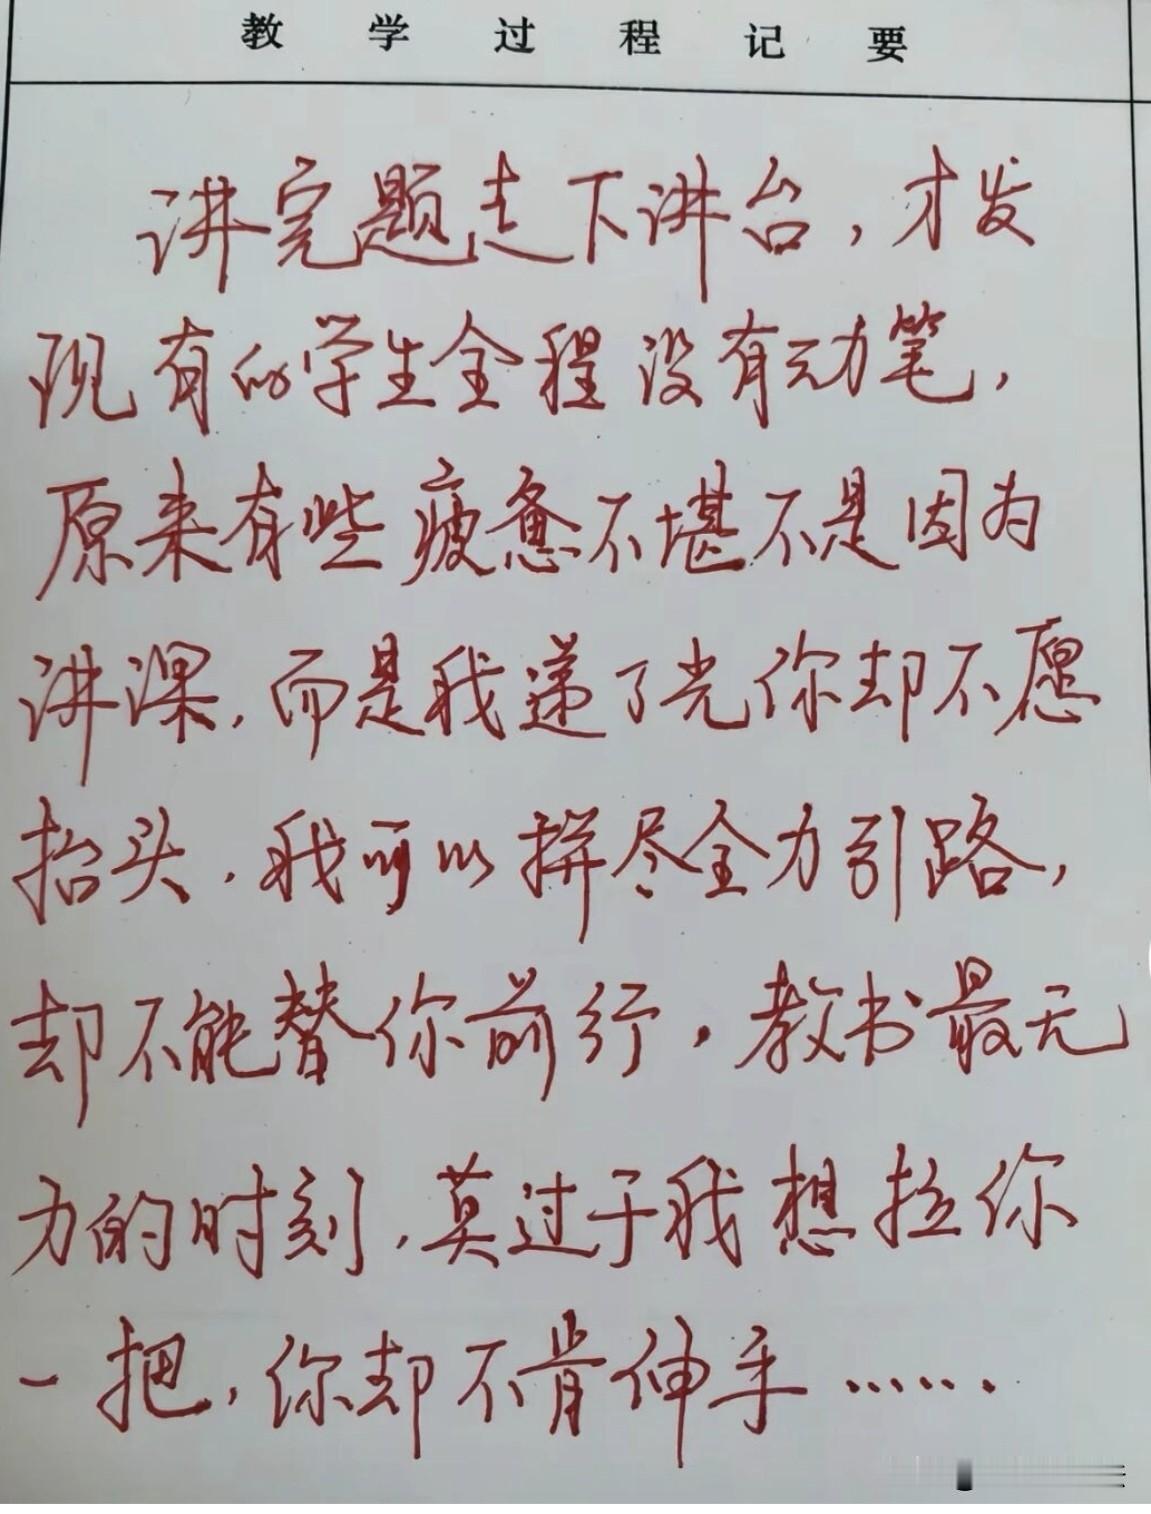 教学过程记要
讲完题走下讲台，才发
现有的学生全程没有动笔，
原来有些疲惫不堪不是因为
讲课，而是我递了光你却不愿
抬头，我可以拼尽全力引路，
却不能替你前行，教书最无
力的时刻，莫过于我想拉你
一把，你却不肯伸手……